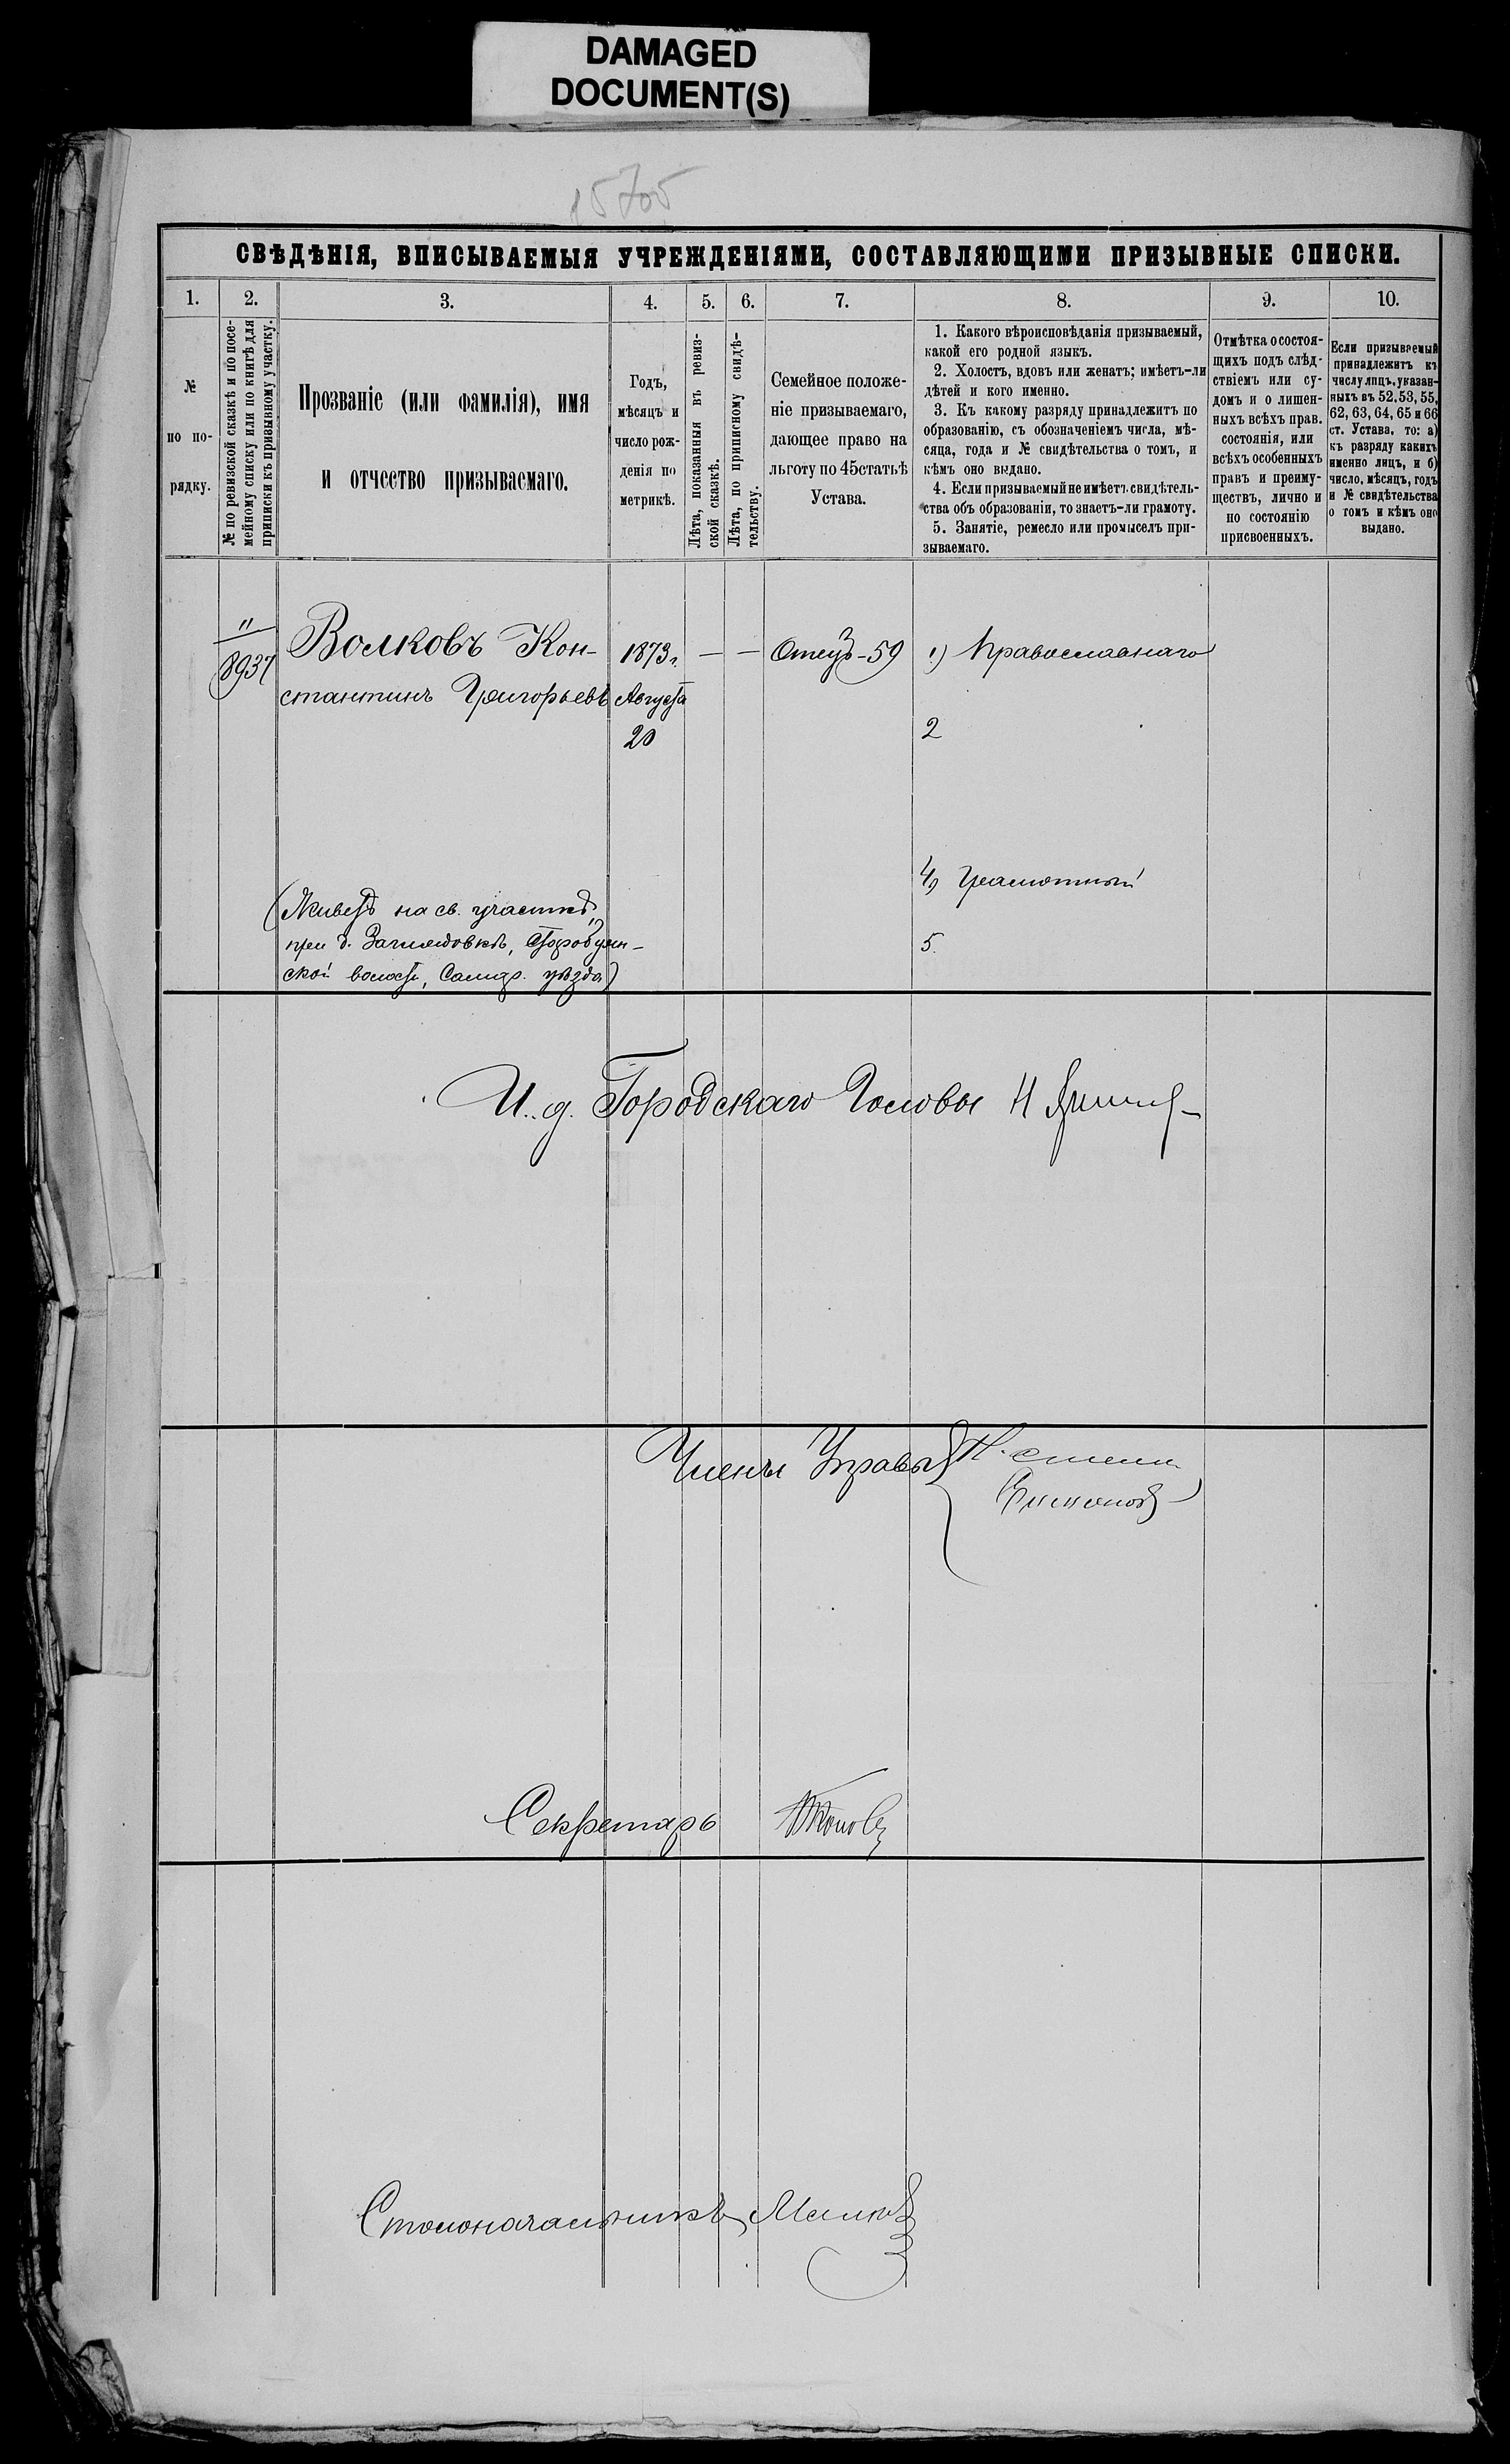 DAMAGED
DOCUMENT(S)
15705
СВѢДѢНІЯ, ВПИСЫВАЕМЫЯ УЧРЕЖДЕНІЯМИ, СОСТАВЛЯЮЩИМИ ПРИЗЫВНЫЕ СПИСКИ.
1. 2. 3. 4. 5. 6. 7. 8. 9. 10.
№
по по-
рядку.
№ по ревизской сказкѣ и по посе-
мейному списку или по книгѣ для
приписки къ призывному участку.
Прозваніе (или фамилія), имя
и отчество призываемаго.
Годъ,
мѣсяцъ и
число рож-
денія по
метрикѣ.
Лѣта, показанныя въ ревиз-
ской сказкѣ.
Лѣта, по приписному свидѣ-
тельству.
Семейное положе-
ніе призываемаго,
дающее право на
льготу по 45 статьѣ
Устава.
1. Какого вѣроисповѣданія призываемый,
какой его родной языкъ.
2. Холостъ, вдовъ или женатъ; имѣетъ-ли
дѣтей и кого именно.
3. Къ какому разряду принадлежитъ по
образованію, съ обозначеніемъ числа, мѣ-
сяца, года и № свидѣтельства о томъ, и
кѣмъ оно выдано.
4. Если призываемый не имѣетъ свидѣтель-
ства объ образованіи, то знаетъ-ли грамоту.
5. Занятіе, ремесло или промыселъ при-
зываемаго.
Отмѣтка о состоя-
щихъ подъ слѣд-
ствіемъ или су-
домъ и о лишен-
ныхъ всѣхъ прав.
состоянія, или
всѣхъ особенныхъ
правъ и преиму-
ществъ, лично и
по состоянію
присвоенныхъ.
Если призываемый
принадлежитъ къ
числу лицъ, указан-
ныхъ въ 52, 53, 55,
62, 63, 64, 65 и 66
ст. Устава, то: а)
къ разряду какихъ
именно лицъ, и б)
число, мѣсяцъ, годъ
и № свидѣтельства
о томъ и кѣмъ оно
выдано.
"
8937
Волковъ Кон-
стантинъ Григорьевъ
1873 г.
Августа
20
— —
Отецъ - 59
1) Православнаго
2
4) Грамотный
5.
(Живетъ на св. участкѣ,
при д.
ской волости, уѣзда)
И. д. Городскаго Головы Н
Члены Управы
Секретарь
Столоначальникъ